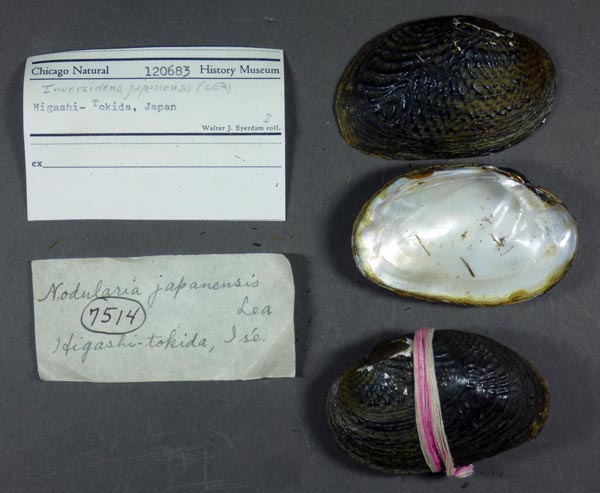 Chicago Natural 120683 History Museum
Inversidens japanensis (LEA)
Higashi- Tokida, Japan
2
Walter J. Eyerdam coll.
ex
Nodularia japanensis
Lea
7514
Higashi-tokida, Ise.